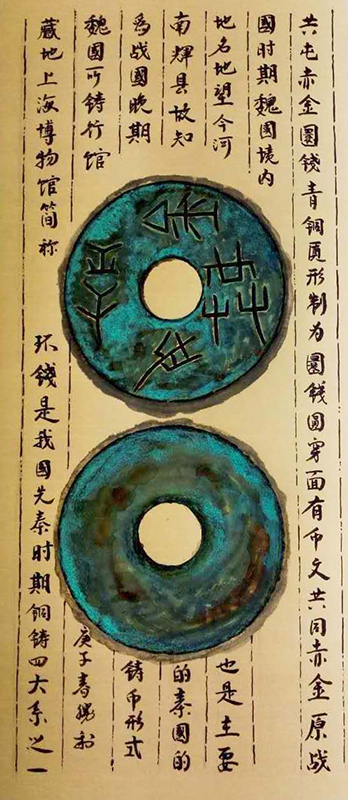 共屯赤金圜錢青铜圆形制为圜錢圆穿面有币文共同赤金原战
國时期魏國境内
地名地望今河
南輝县故知
為战國晚期
魏國所铸行馆
藏地上海博物馆简称
环錢是我國先秦时期铜铸四大系之一
也是主要
的秦國的
铸币形式
庚子春
共屯赤金